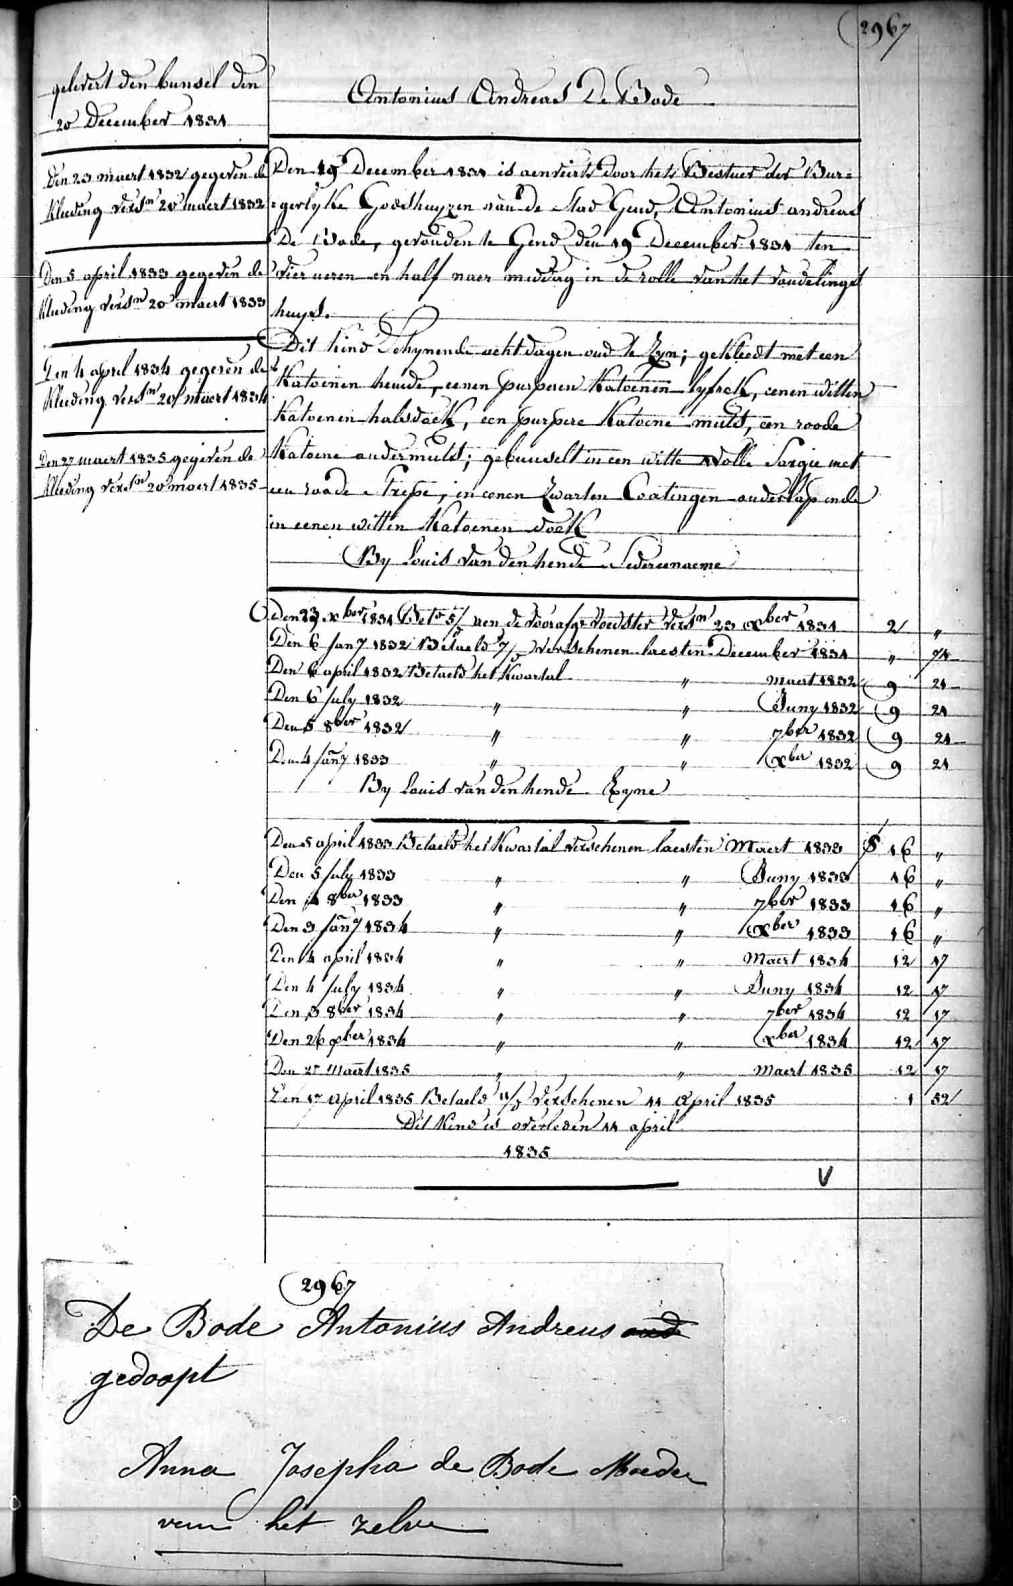 2967
gelevert den bunsel den
20 December 1831
Antonius Andreas De Bode
Den 23 maert 1832 gegeven de
kleeding versn 20 maert 1832
Den 5 april 1833 gegeven de
kleeding versn 20 maert 1833
Den 4 april 1834 gegeven de
kleeding versn 20 maert 1834
Den 27 maert 1835 gegeven de
kleeding versn 20 maert 1835
Den 19 December 1831 is aenveirt door het Bestuer der Bur=
=gerlyke Godshuyzen van de Stad Gend, Antonius andreas
De Bode, gevonden te Gend den 19 December 1831 ten
vier ueren en half naer middag in de rolle van het vondelings
huys.
Dit kind schynende acht dagen oud te zyn; gekleedt met een
katoenen hemde, eenen purperen katoenen lyfrok, eenen witten
katoenen halsdoek, een purpere katoene muts, een roode
katoene ondermuts; gebunselt in een witte wolle Sargie met
een roode strepe, in eenen zwarten Coatingen onderlap ende
in eenen witten katoenen doek
By Louis Van den hende Ledereenaeme
Den 23 xber 1831 Betn 5/ aen de voorafge voedster versn 23 xber 1831 2 "
Den 6 Jany 1832 Betaeld 7/ verschenen laesten December 1831 " 74
Den 6 april 1832 Betaeld het Kwartal " maert 1832 9 21
Den 6 July 1832 " " Juny 1832 9 21
Den 5 8ber 1832 " " 7ber 1832 9 21
Den 4 Jany 1833 " " xber 1832 9 21
By Louis van den hende Eyne
Den 5 april 1833 Betaeld het Kwartal verschenen laesten Maert 1833 16 "
Den 5 July 1833 " " Juny 1833 16 "
Den 4 8ber 1833 " " 7ber 1833 16 "
Den 3 Jany 1834 " " xber 1833 16 "
Den 4 april 1834 " " Maert 1834 12 17
Den 4 July 1834 " " Juny 1834 12 17
Den 3 8ber 1834 " " 7ber 1834 12 17
Den 26 xber 1834 " " xber 1834 12 17
Den 27 Maert 1835 " " Maert 1835 12 17
Den 17 April 1835 Betaeld 11/ verschenen 11 April 1835 1 52
Dit Kind is overleden 11 april
1835
V
2967
De Bode Antonius Andreus
gedoopt
Anna Josepha de Bode Moeder
van het zelve